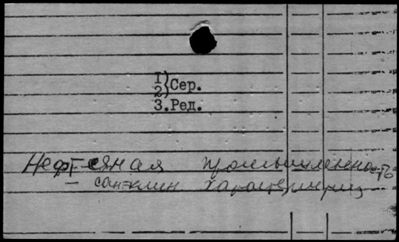 1)
2) Сер.
3. Ред.
Нефтяная промышленность
— сан-клин характеристика